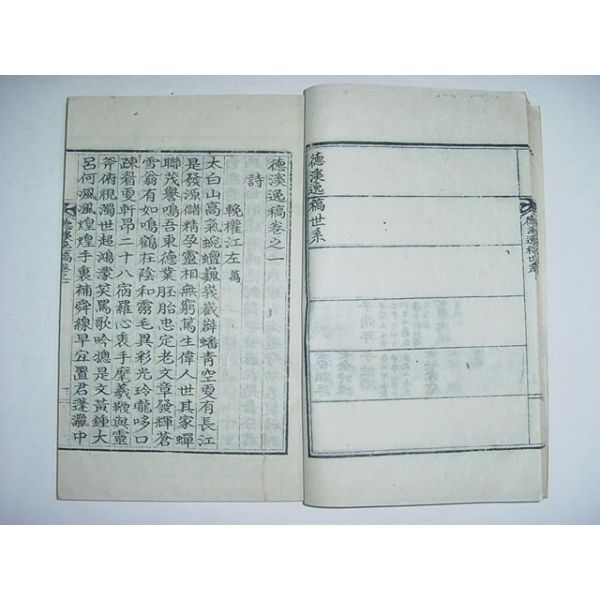 德溪逸稿世系
德溪逸稿卷之一
詩
輓權江左萬
太白山高氣蜿蟺巍峩截嶭蟠青空更有長江
是發源儲精孕靈相無窮篤生偉人世其家蟬
聯茂譽鳴吾東德業胚胎忠定老文章發輝蒼
雪翁有如鳴鶴在陰和霱毛異彩光玲嚨哆口
疎眉更軒昂二十八宿羅心衷手摩羲鞭與靈
斧俯視濁世超鴻濛笑罵歌吟摠是文黃鍾大
呂何渢渢煌煌手裏補舜線早宜置君蓬瀛中